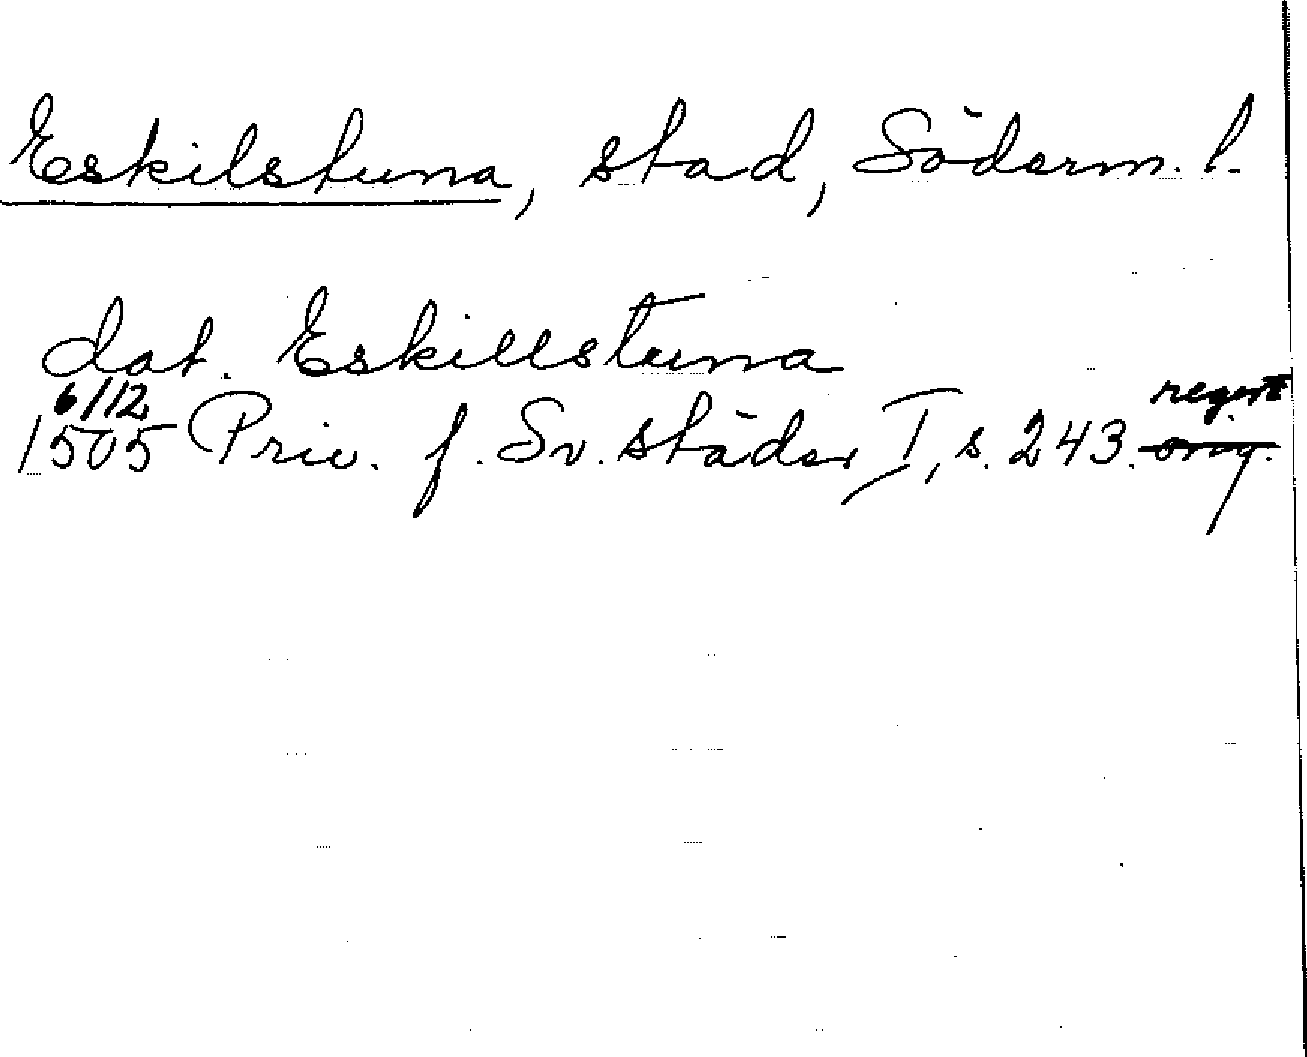 Eskilstuna, stad, Söderm. l.
dat. Eskillstuna
6/12 regest
1505 Priv. f. Sv. städer I, s. 243. orig.